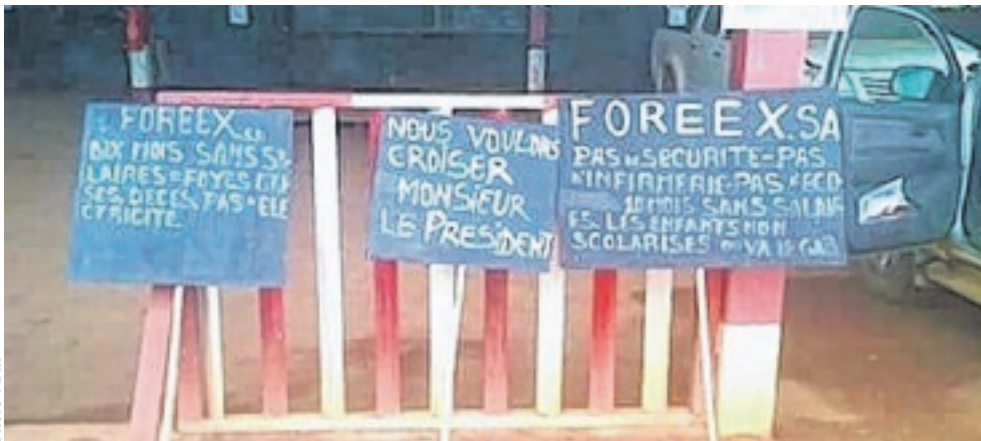 FOREEX SA
DIX MOIS SANS SA
LAIRES=FOYES
SES, DECES, PAS D'ELE
CTRICITE
NOUS VOULONS
CROISER
MONSIEUR
LE PRESIDENT
FOREEX.SA
PAS DE SECURITE-PAS
D'INFIRMERIE-PAS
10 MOIS SANS SALAIR
ES. LES ENFANTS NON
SCOLARISES OU VA LE GAB